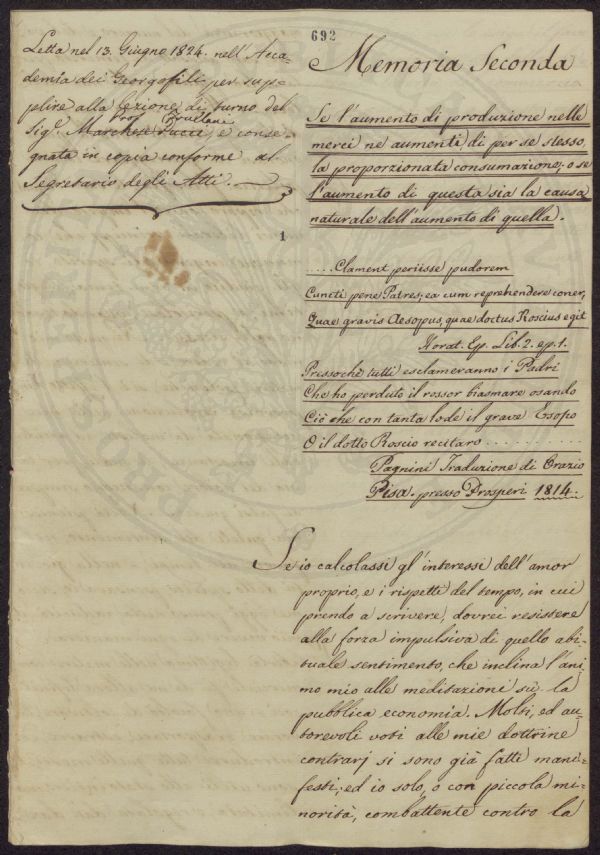 692
Letta nel 13. Giugno 1824. nell'Acca-
demia dei Georgofili per sup-
plire alla lezione di turno del
Prof. Brullena
Sigr. Marchese Pucci, e conse-
gnata in copia conforme al
Segretario degli Atti.
1
Memoria Seconda
Se l'aumento di produzione nelle
merci ne aumenti di per se stesso,
la proporzionata consumazione; o se
l'aumento di questa sia la causa
naturale dell'aumento di quella.
....Clament periisse pudorem
Cuncti pene Patres; ea cum reprehendere coner,
Quae gravis Aesopus, quae doctus Roscius egit
Horat. Ep. Lib. 2. ep. 1.
Pressochè tutti esclameranno i Padri
Che ho perduto il rossor biasmare osando
Ciò che con tanta lode il grave Esopo
O il dotto Roscio recitaro..........
Pagnini Traduzione di Orazio
Pisa. presso Prosperi 1814.
Se io calcolassi gl'interessi dell'amor
proprio, e i rispetti del tempo, in cui
prendo a scrivere, dovrei resistere
alla forza impulsiva di quello abi-
tuale sentimento, che inclina l'ani-
mo mio alle meditazioni sù la
pubblica economia. Molti, ed au-
torevoli voti alle mie dottrine
contrarj si sono già fatti mani-
festi; ed io solo, o con piccola mi-
norità, combattente contro la